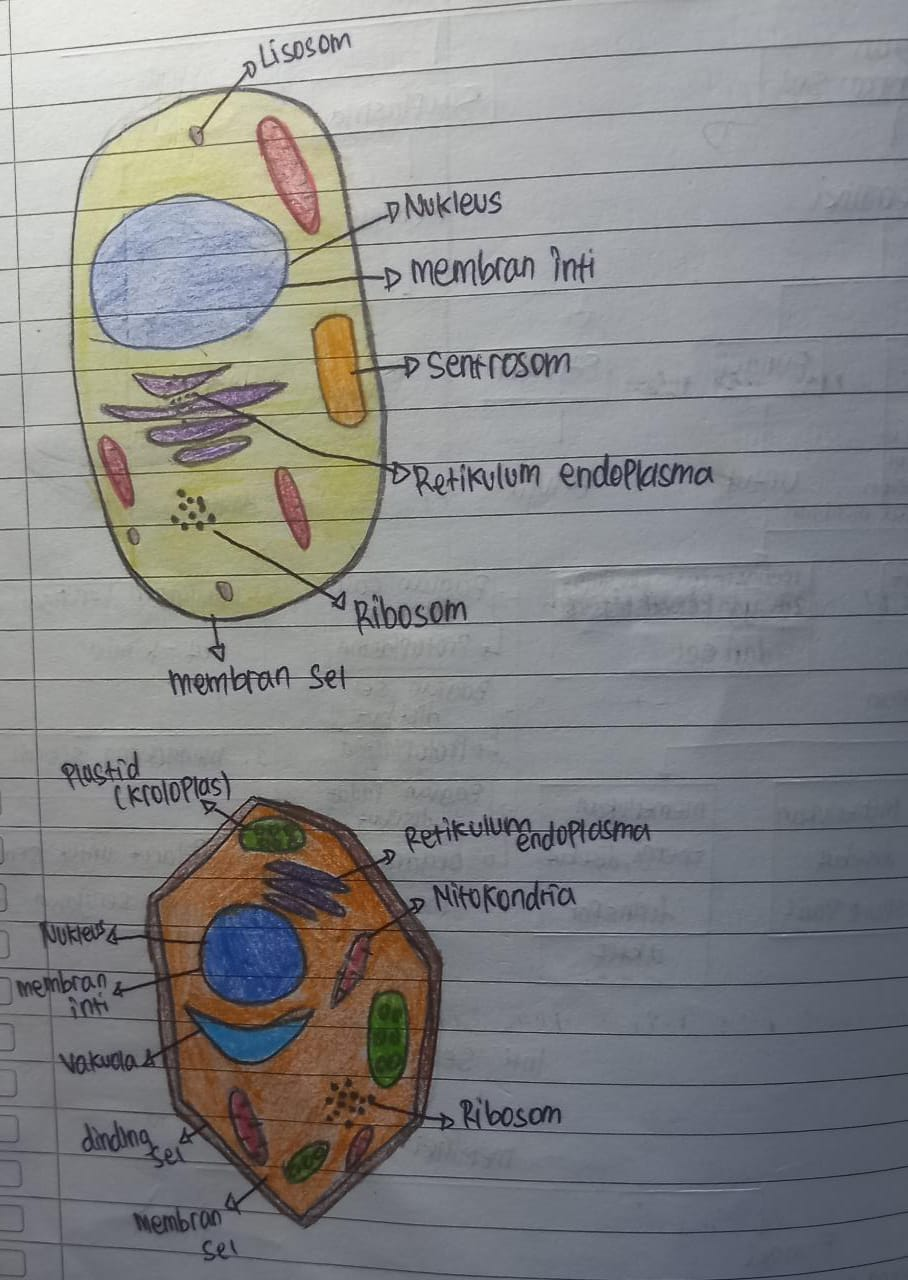 Lisosom
Nukleus
membran inti
Sentrosom
Retikulum endoplasma
Ribosom
membran sel
Plastid
(Kroloplas)
Retikulum endoplasma
Mitokondria
Nukleus
membran
inti
Vakuola
Ribosom
dinding
sel
membran
sel